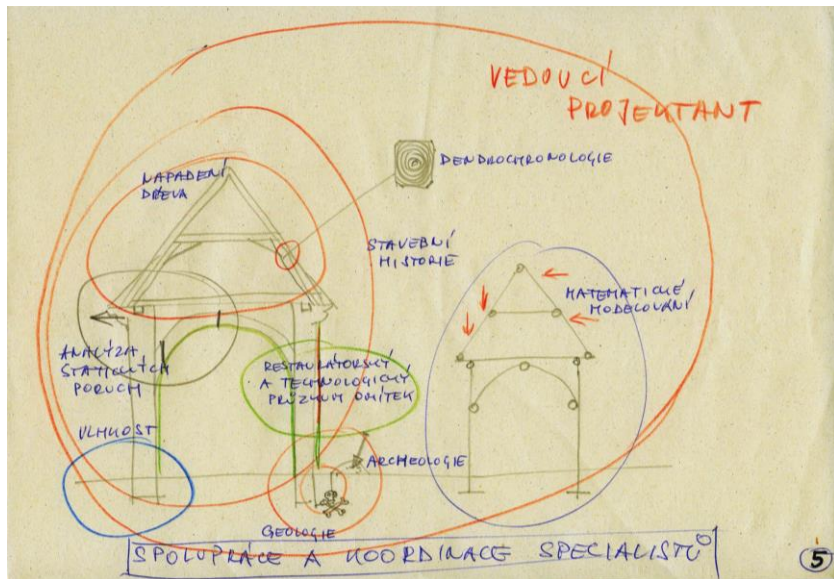 VEDOUCÍ
PROJEKTANT
NAPADENÍ
DŘEVA
DENDROCHRONOLOGIE
STAVEBNÍ
HISTORIE
MATEMATICKÉ
MODELOVÁNÍ
ANALÝZA
STATICKÝCH
PORUCH
RESTAURÁTORSKÝ
A TECHNOLOGICKÝ
PRŮZKUM OMÍTEK
VLHKOST
ARCHEOLOGIE
GEOLOGIE
SPOLUPRÁCE A KOORDINACE SPECIALISTŮ
5